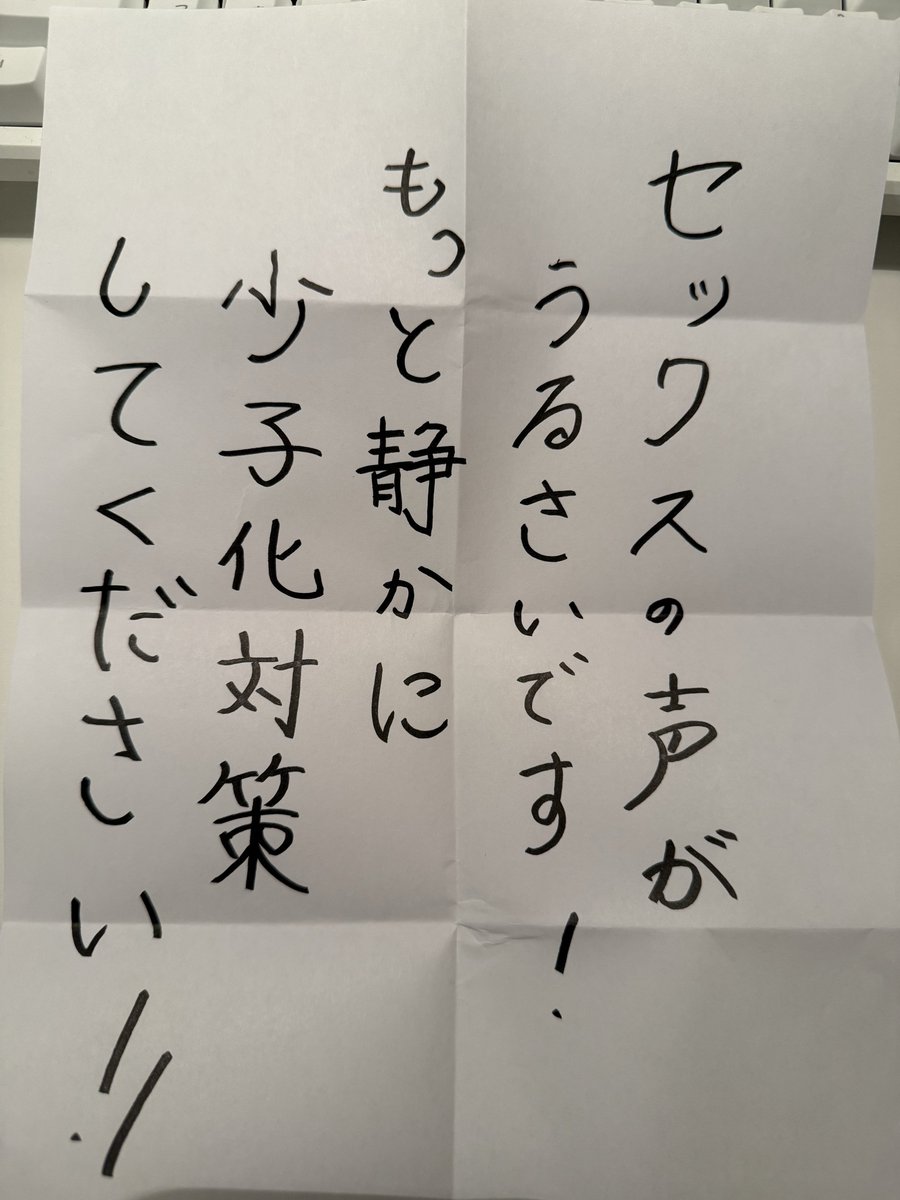 セックスの声が
うるさいです!
もっと静かに
少子化対策
してください!!